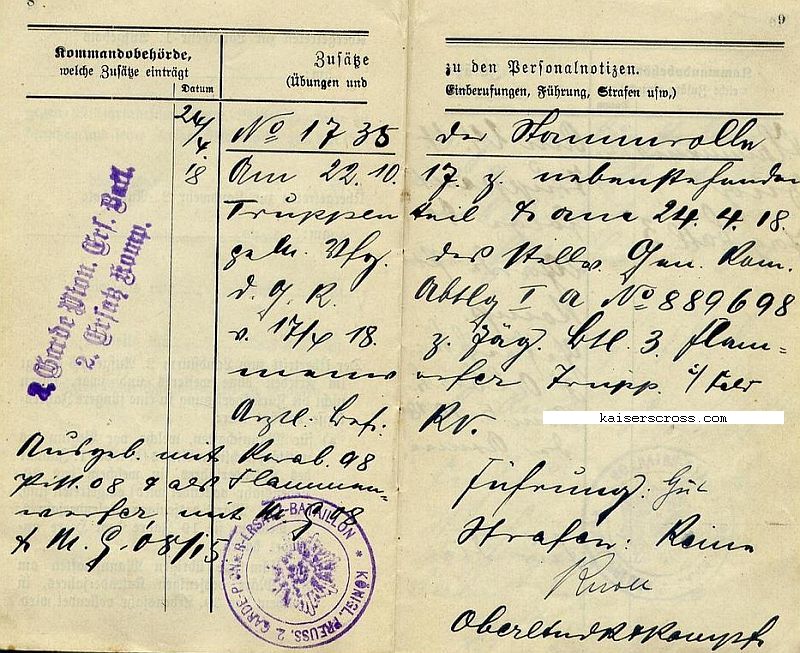 8
Kommandobehörde,
welche Zusätze einträgt
Datum
Zusätze
(Übungen und
24/
4.
18
2. Garde Pion. Ers. Batl.
2. Ersatz Komp.
No 1735
Am 22. 10.
Truppen
gem. Vfg.
d. G. K.
v. 17/4 18.
Arztl. Bef:
Ausgeb. mit Karab. 98
Pist. 08 & als Flammen-
werfer mit M. G. 08
& M. G. 08/15
KÖNIGL. PREUSS. 2. GARDE-PIONIER-ERSATZ-BATAILLON *
9
zu den Personalnotizen.
Einberufungen, Führung, Strafen usw.)
der Stammrolle
17. z. nebenstehenden
teil & am 24. 4. 18.
des Stellv. Gen. Kom.
Abtlg I a No 889698
z. Jäg. Btl. 3. Flam-
werfer Trupp i/Feld
KV.
kaiserscross.com
Führung: Gut
Strafen: Keine